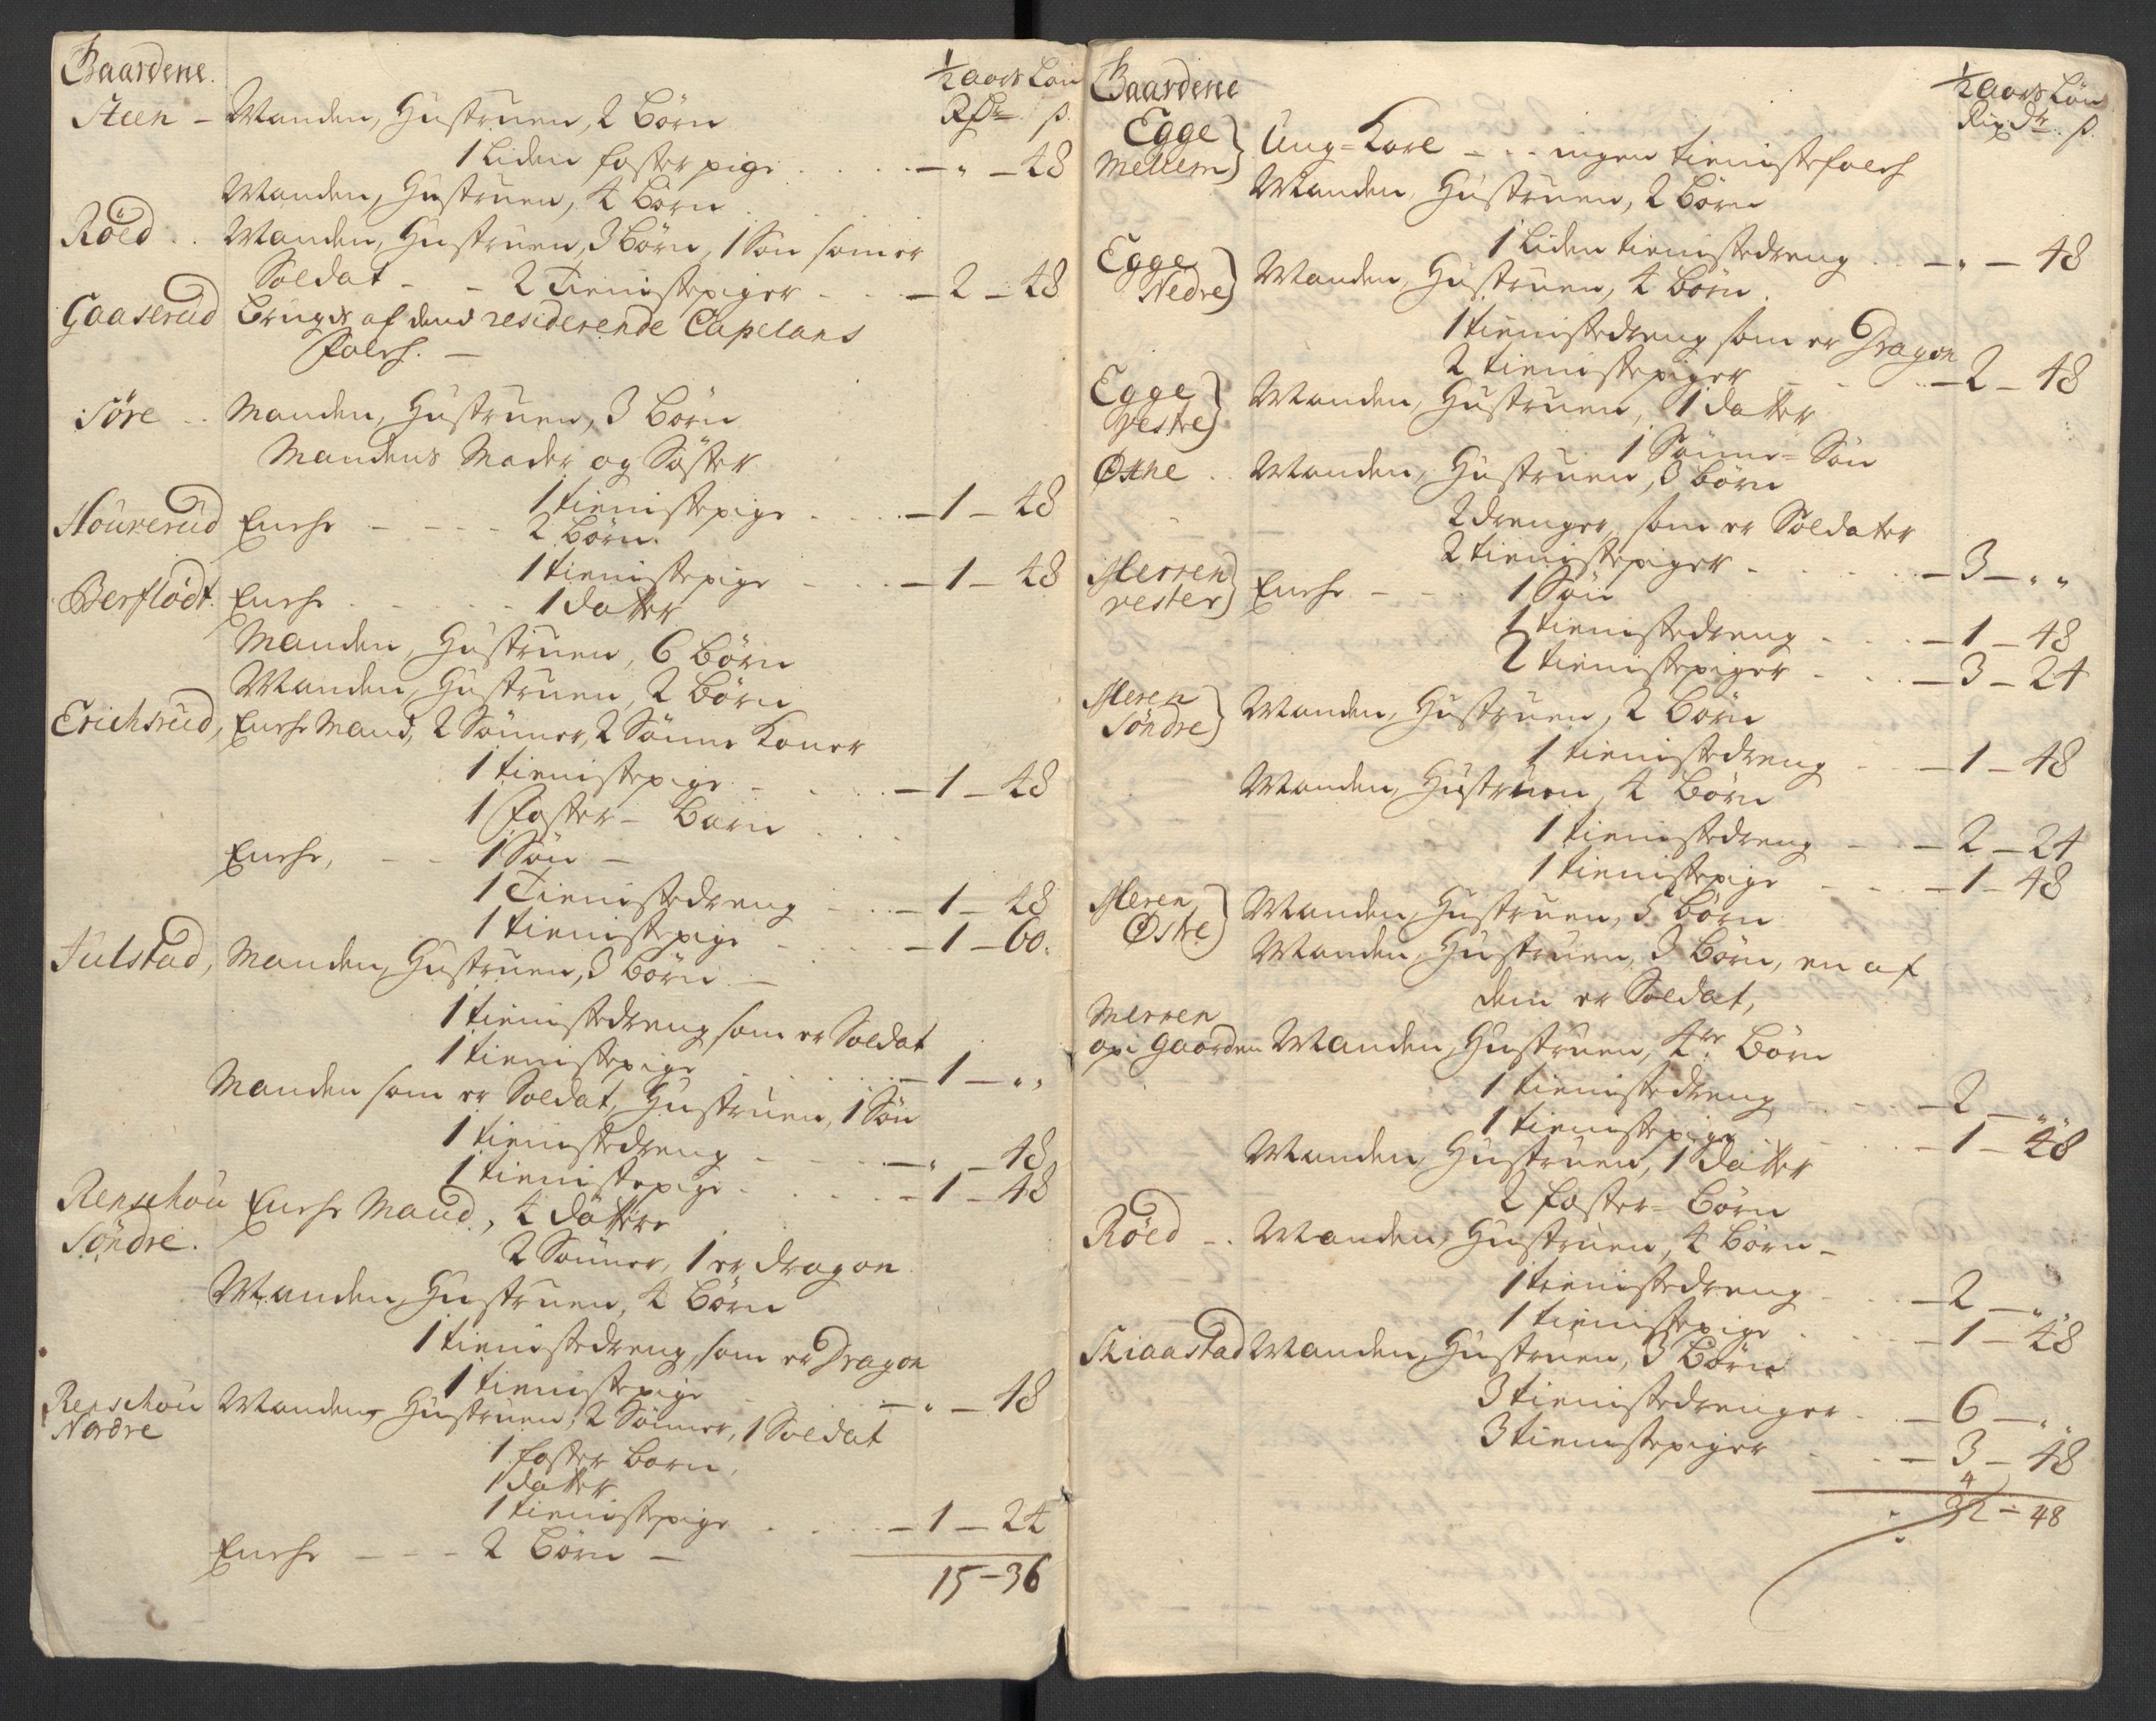 Gaardene. ½ Aars Løn
Rdr. ß.
Steen - Manden, Hustruen, 2 Børn
1 Liden foster pige . . . . - " - 48
Manden, Hustruen, 4 Børn
Röed . . Manden, Hustruen, 3 Børn, 1 Søn som er
Soldat - - 2 Tieniste piger - - - 2 - 48
Gaaserud Bruges af dend residerende Capelans
Folch. -
Söre . . Manden, Hustruen, 3 Børn
Mandens Moder og Søster
1 tienistepige . . . . - 1 - 48
Hourerud Enche - - - - 2 Børn.
1 tienistepige . . . - 1 - 48
Berflödt. Enche . . . . 1 datter
Manden, Hustruen, 6 Børn
Manden, Hustruen, 2 Børn
Erichsrud, Enche Mand, 2 Sønner, 2 Sønne Koner
1 tienistepige - - . . - 1 - 48
1 Foster - Barn . . .
Enche, - - 1 Søn -
1 Tienistedreng - . . - 1 - 48
1 tienistepige - - . . - 1 - 60.
Julstad, Manden, Hustruen, 3 Børn -
1 tienistedreng som er Soldat
1 tienistepige . . . . - 1 - "
Manden som er Soldat, Hustruen, 1 Søn
1 tienistedreng - - - - " - 48
1 tienistepige - . . . - 1 - 48
Renschou Enche Mand, 4 døttre
Söndre. 2 Sønner, 1 er dragon
Manden, Hustruen, 4 Børn
1 tienistedreng, som er Dragon
1 tienistepige - - " - 48
Renschou Manden, Hustruen, 2 Sønner, 1 Soldat
Nordre 1 foster barn,
1 datter
1 tienistepige . . . . - 1 - 24
Enche - - - 2 Børn -
15 - 36
Gaardene ½ Aars Løn
Rixdr. ß.
Egge Mellem } Ung-Karl - - - ingen tienistefolch
Manden, Hustruen, 2 Børn
1 Liden tienistedreng . . - " - 48
Egge Nedre } Manden, Hustruen, 4 Børn.
1 tienistedreng som er Dragon
2 tienistepiger - - . . - 2 - 48
Egge vestre } Manden, Hustruen, 1 datter
1 Sønne-Søn
Østne . . Manden, Hustruen, 3 børn
2 drenger, som er Soldater
2 tienistepiger - . . . - 3 - " "
Merren vester } Enche - - . 1 Søn
1 tienistedreng - . . - 1 - 48
2 tienistepiger - . . - 3 - 24
Meren Söndre } Manden, Hustruen, 2 Børn
1 tienistedreng - - 1 - 48
Manden, Hustruen, 4 Børn
1 tienistedreng - . - 2 - 24
1 tienistepige - - - 1 - 48
Meren Østre } Manden, Hustruen, 5 Børn
Manden, Hustruen, 3 Børn, en af
dem er Soldat,
Merren
opi gaarden Manden, Hustruen, 4re Børn
1 tienistedreng - . - 2 - " "
1 tienistepige - - 1 - 48
Manden, Hustruen, 1 datter
2 foster-Børn
Röed - . Manden, Hustruen, 4 Børn -
1 tienistedreng - . . - 2 - " "
1 tienistepige . . - 1 - 48
Skiaastad Manden, Hustruen, 3 Børn
3 tienistedrenger - . - 6 - " "
3 tienistepiger - . . - 3 - 48
32 - 48